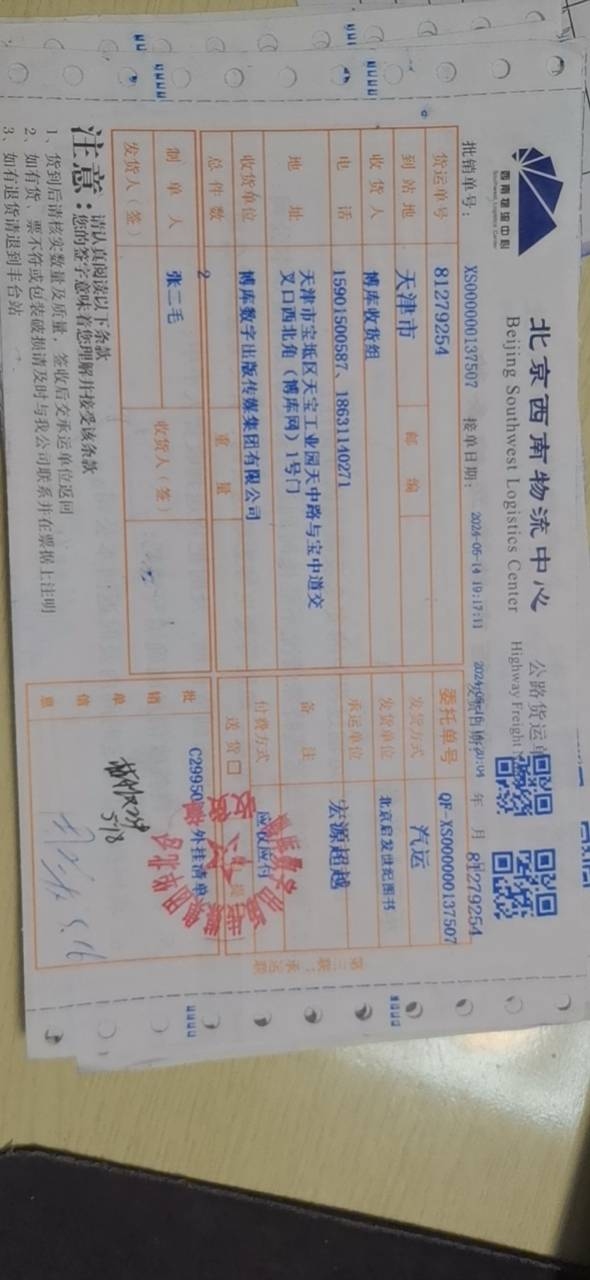 西南物流中心
Southwest Logistics Center
北京西南物流中心 公路货运单
Beijing Southwest Logistics Center Highway Freight
批销单号: XS000000137507 接单日期: 2024-05-14 19:17:11
年 月 81279254
货运单号 81279254 委托单号 QF-XS000000137507
到站地 天津市 邮编 发货方式 汽运
收货人 博库收货组 发货单位 北京启发世纪图书
电话 15901500587、18631140271 承运单位 宏源超越
地址 天津市宝坻区天宝工业园天中路与宝中道交
叉口西北角(博库网)1号门
备注
收货单位 博库数字出版传媒集团有限公司 付费方式 应收应付
总件数 2 重量 送货口
制单人 张二毛 收货人(签)
发货人(签)
批销单信息 C29950 外挂清单
5.18
5.16
第三联:承运联
注意: 请认真阅读以下条款
您的签字意味着您理解并接受该条款
1、货到后请核实数量及质量,签收后交承运单位返回
2、如有货、票不符或包装破损请及时与我公司联系并在票据上注明
3、如有退货请退到丰台站